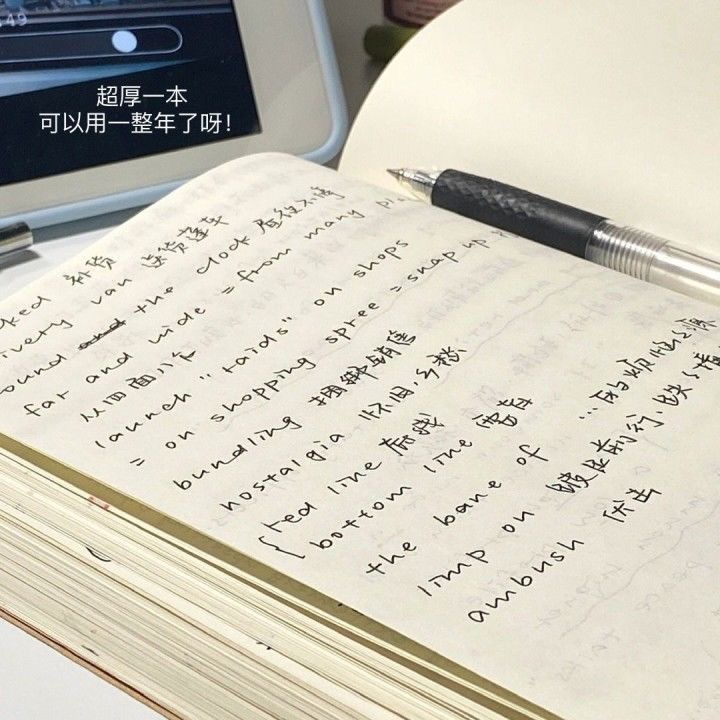 49
超厚一本
可以用一整年了呀！
ked 补货
ivery van 送货篷车
ound the clock 昼夜不停
far and wide = from many pl
从四面八方
launch "raids" on shops
= on shopping spree = snap up
bundling 捆绑销售
nostalgia 怀旧，乡愁
{ red line 赤线
bottom line 零售
the bane of …的烦恼之源
limp on 跛足前行
ambush 伏击